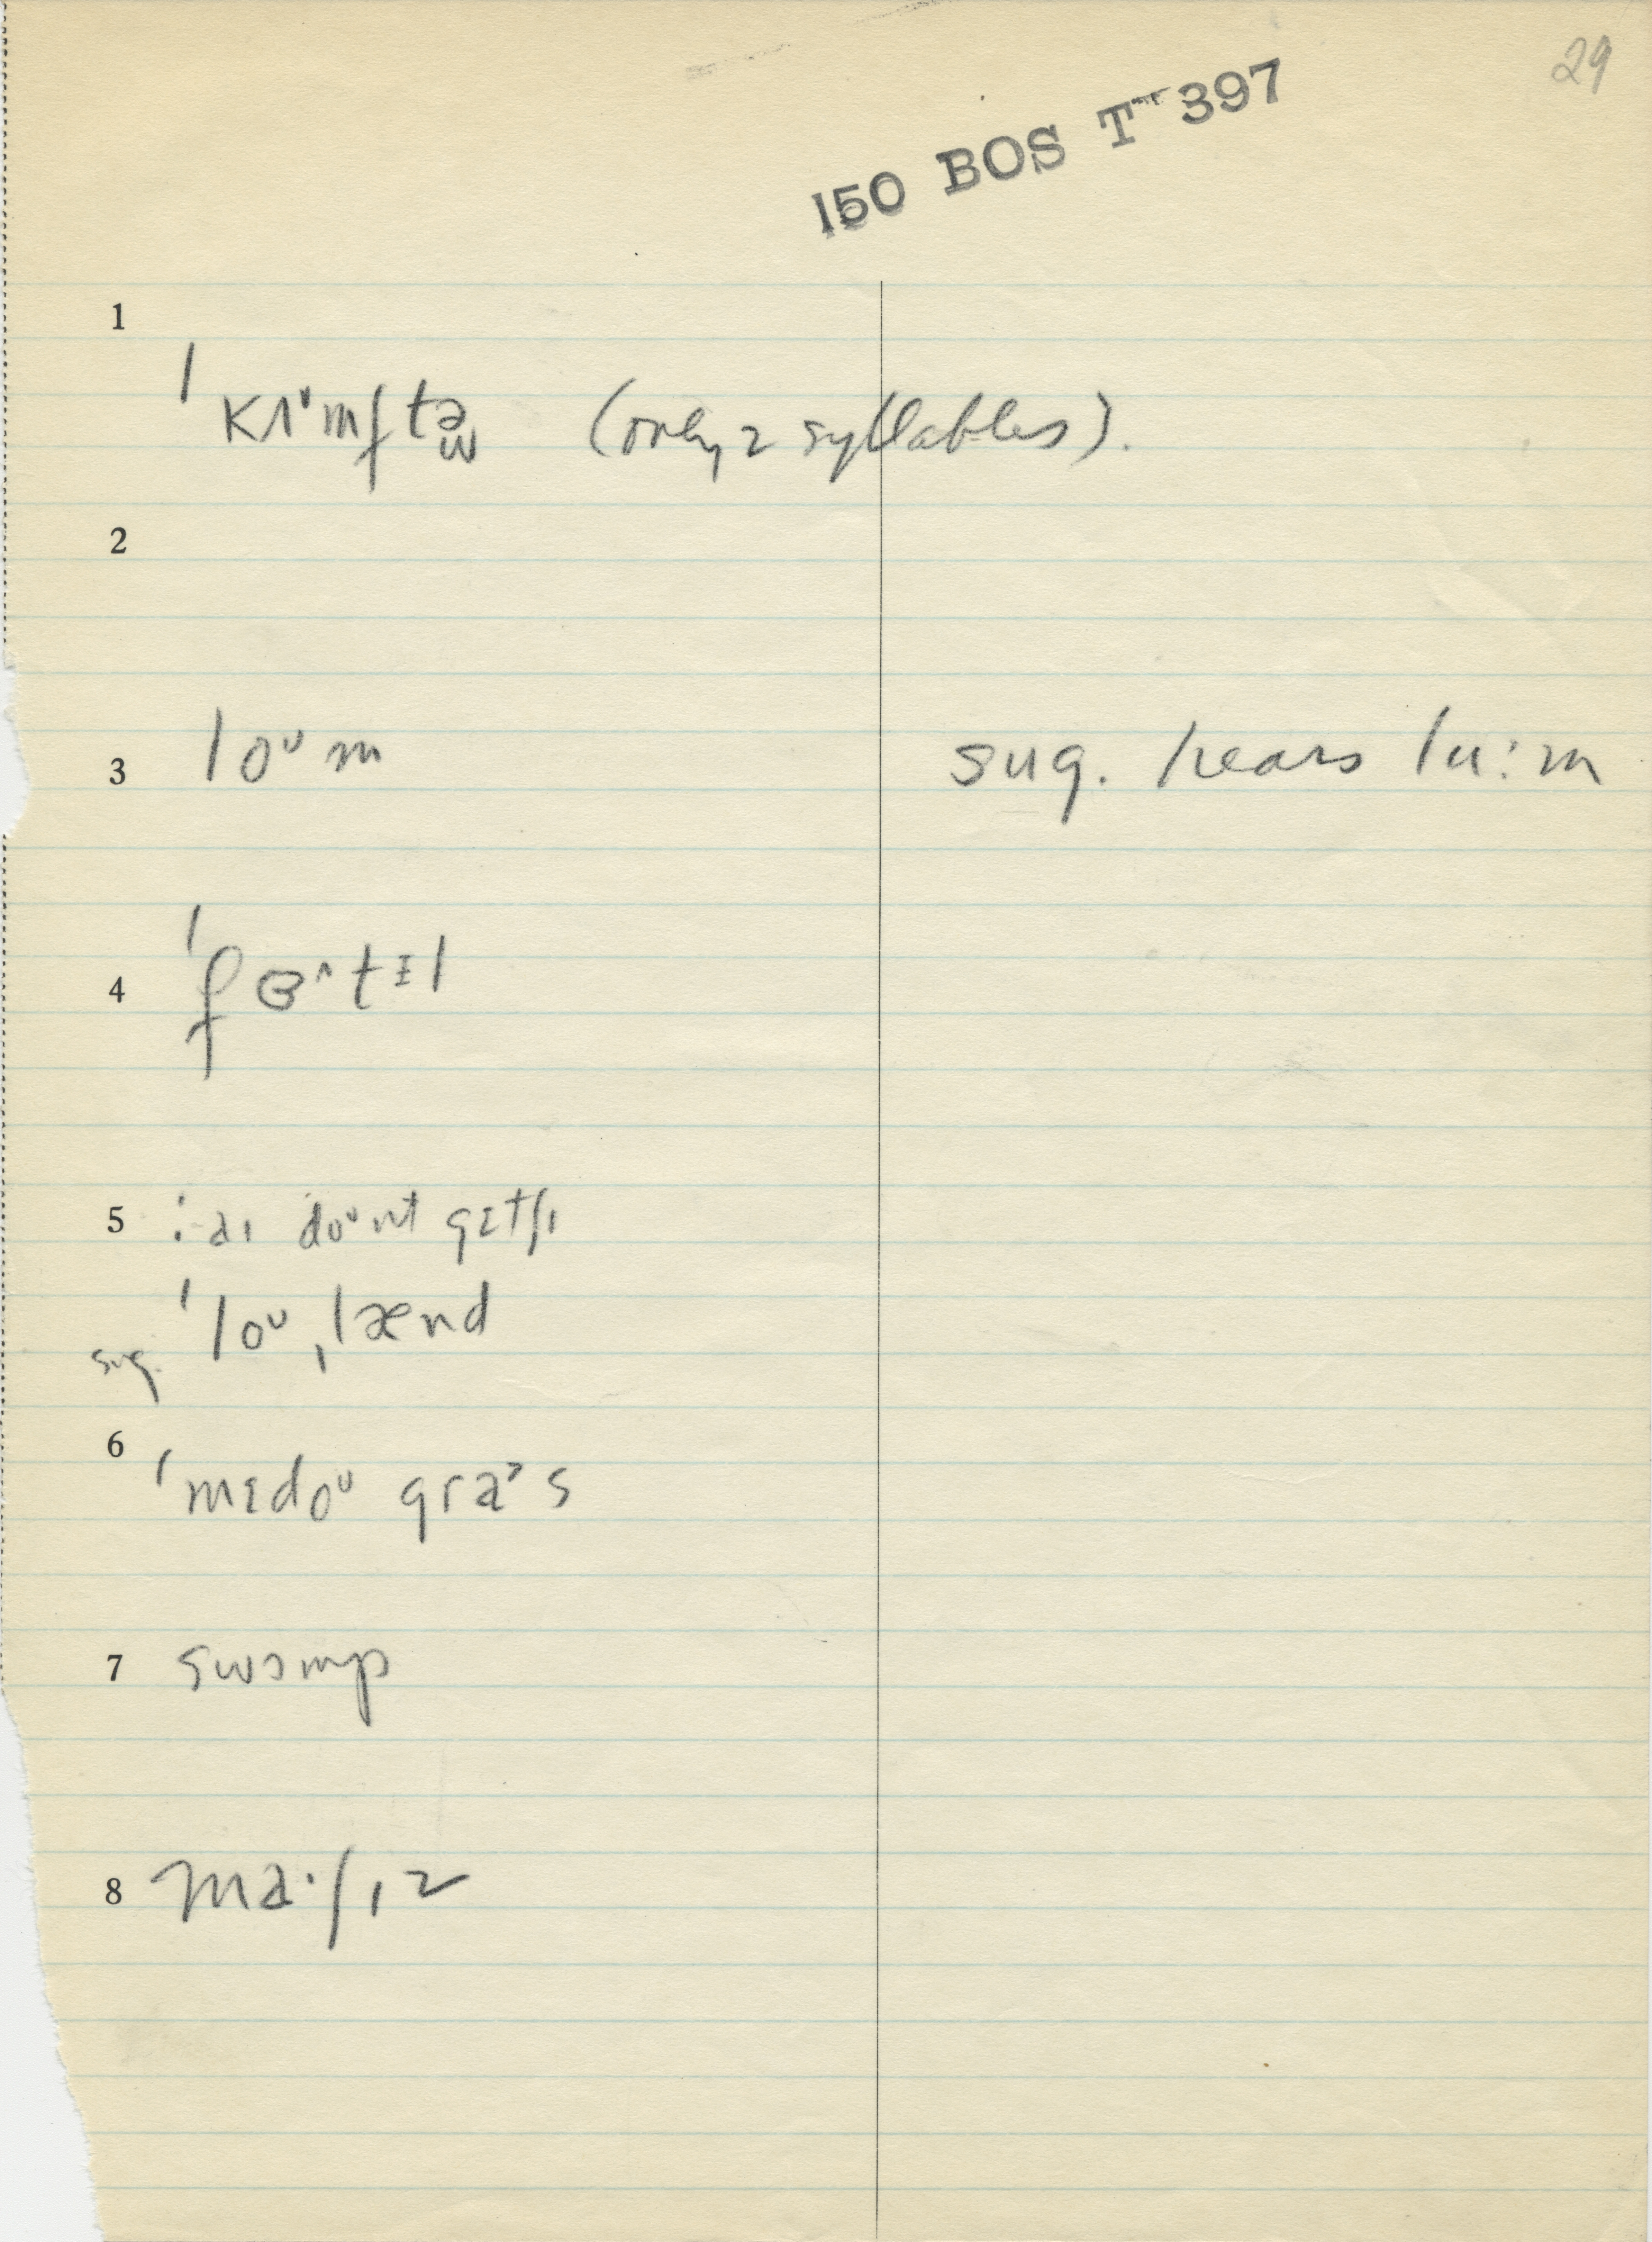 29
150 BOS T 397
1
ˈkʌᶷmftəw (only 2 syllables).
2
3 loᶷm sug. hears lu:m
4 ˈfɵ^tɪl
5 :-aɪ doᶷnt gɛtʃɪ
sug. ˈloᶷˌlænd
6 ˈmɛdoᶷ gra˃s
7 swɔmp
8 ma·ʃɪz